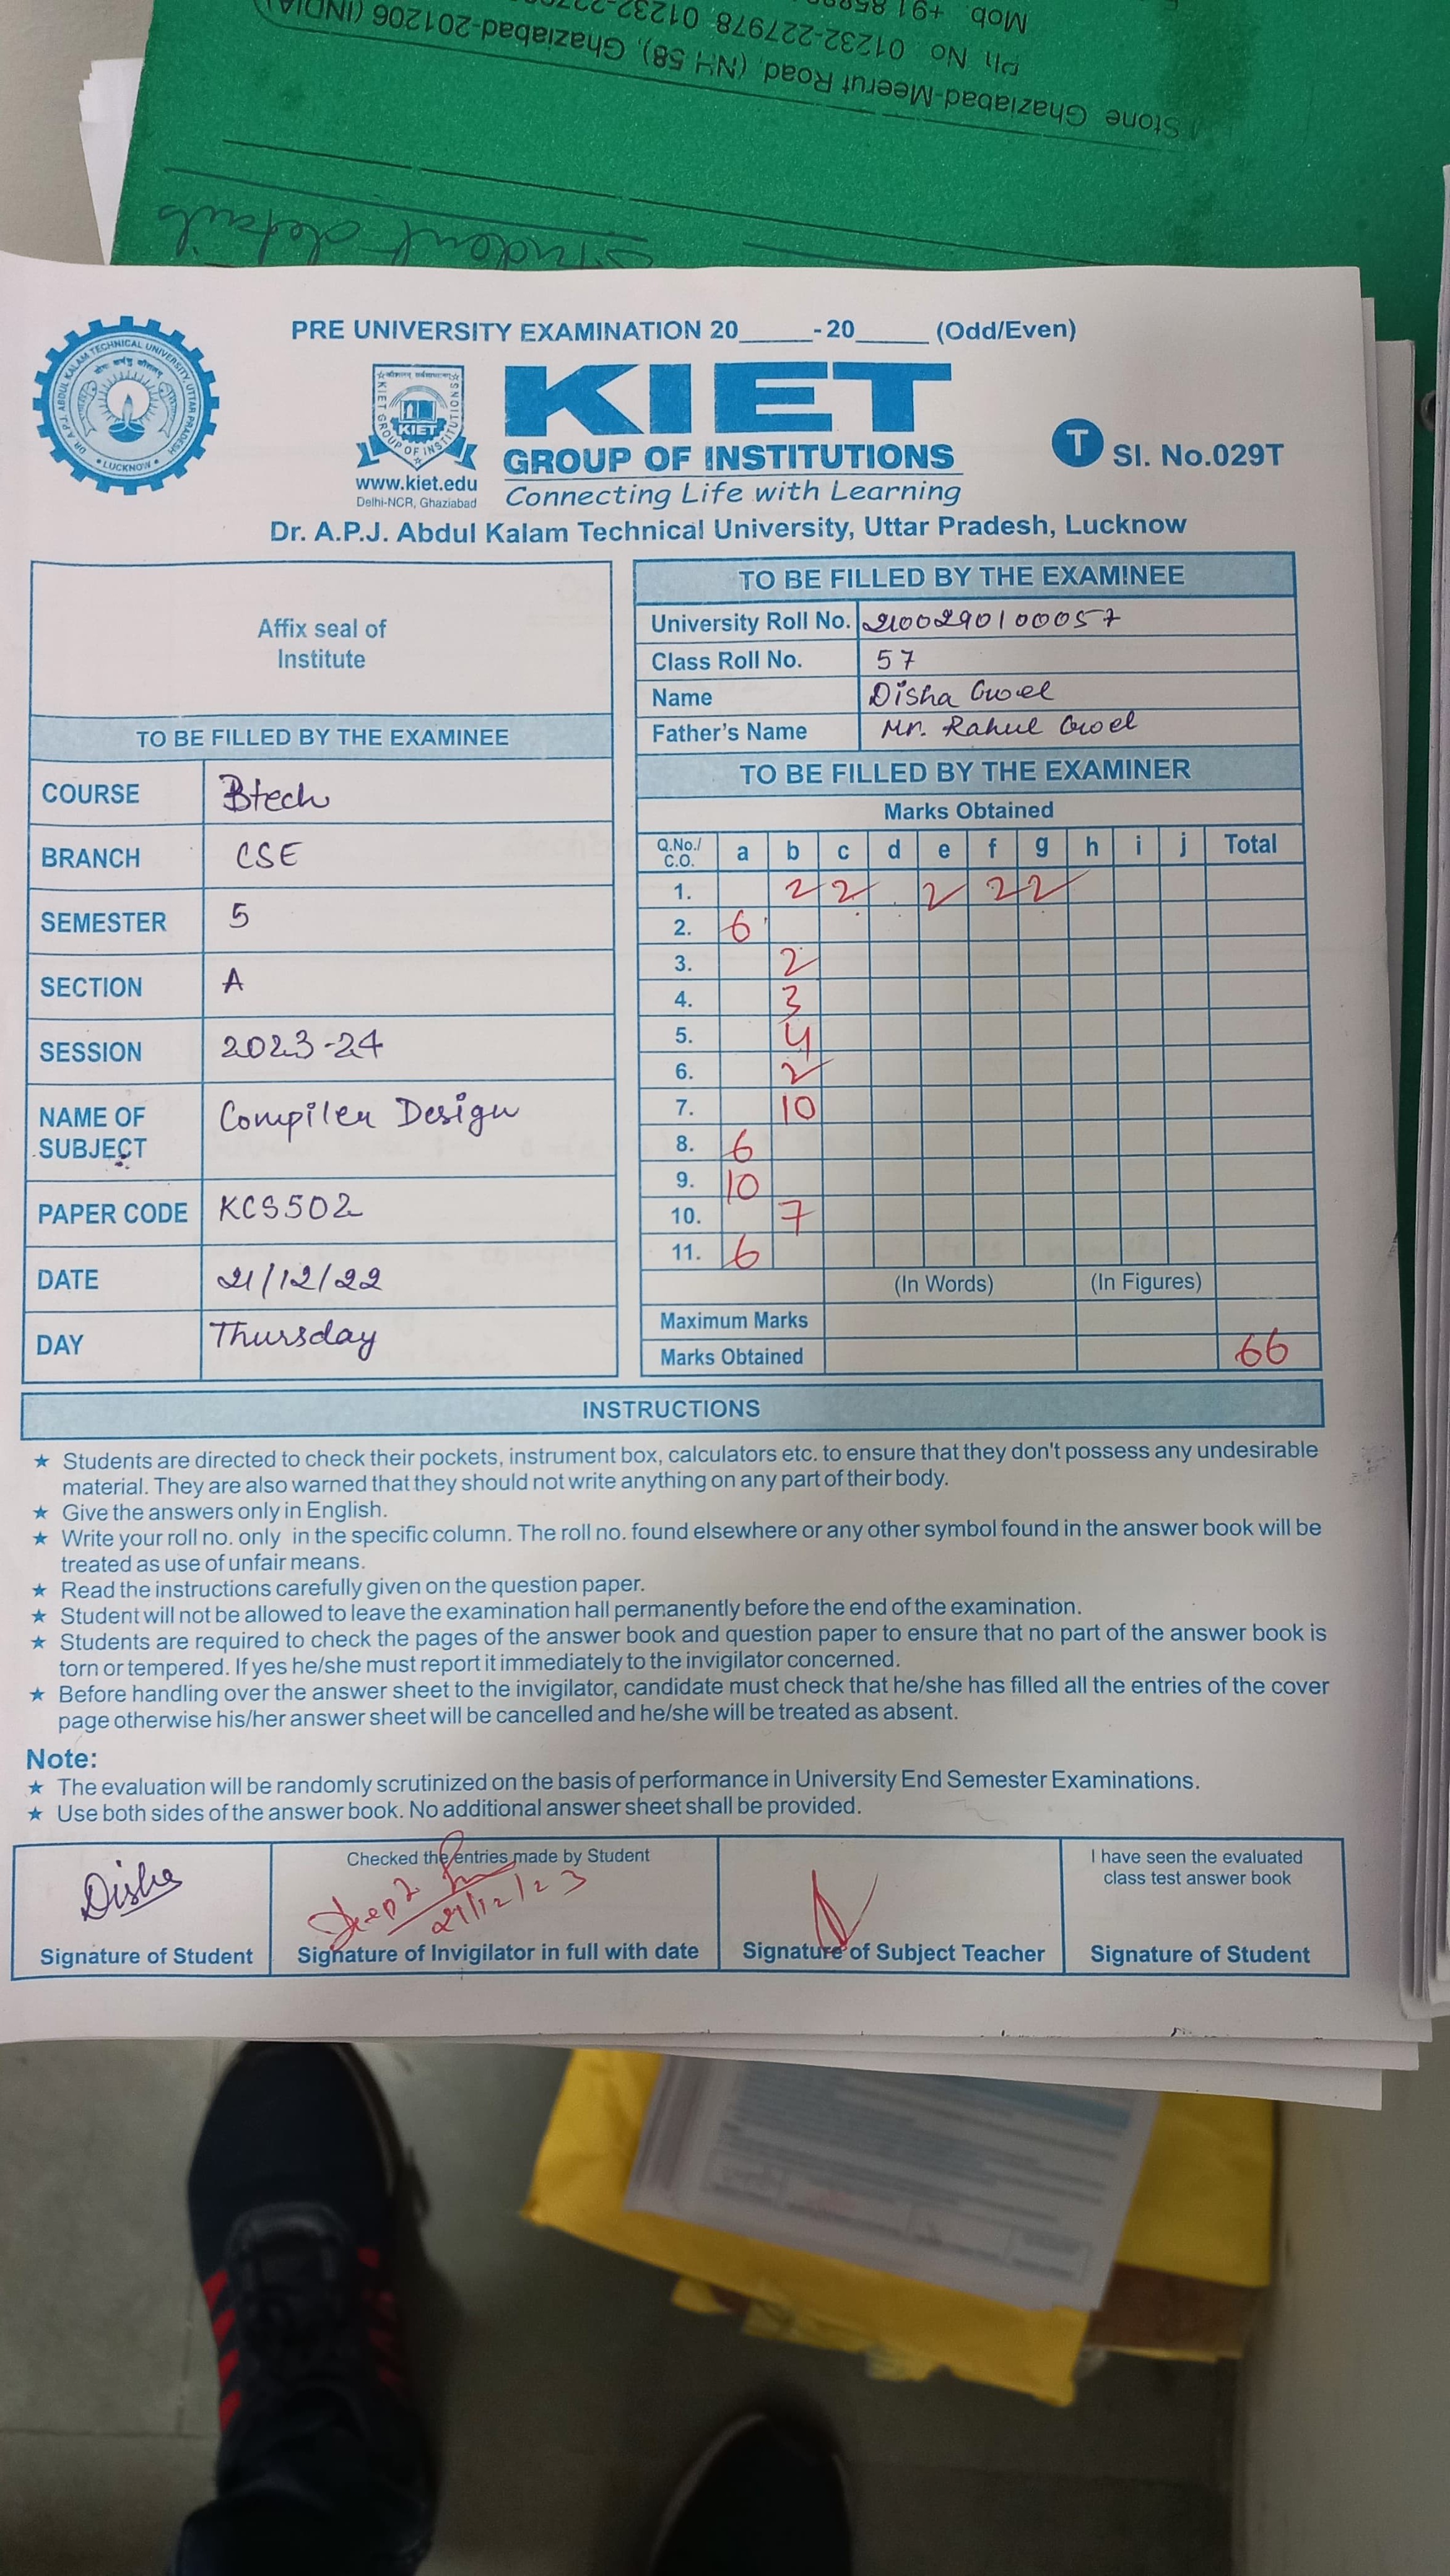 Mob. +91 858
Ph. No. 01232-227978, 01232-227
Stone Ghaziabad-Meerut Road, (NH 58), Ghaziabad-201206 (INDIA)
Student details
PRE UNIVERSITY EXAMINATION 20_____-20_____ (Odd/Even)
DR. A.P.J. ABDUL KALAM TECHNICAL UNIVERSITY, UTTAR PRADESH
LUCKNOW
KIET GROUP OF INSTITUTIONS
KIET
www.kiet.edu
Delhi-NCR, Ghaziabad
KIET
GROUP OF INSTITUTIONS
Connecting Life with Learning
T Sl. No.029T
Dr. A.P.J. Abdul Kalam Technical University, Uttar Pradesh, Lucknow
Affix seal of
Institute
TO BE FILLED BY THE EXAMINEE
COURSE Btech
BRANCH CSE
SEMESTER 5
SECTION A
SESSION 2023-24
NAME OF
SUBJECT Compiler Design
PAPER CODE KCS502
DATE 21/12/22
DAY Thursday
TO BE FILLED BY THE EXAMINEE
University Roll No. 2100290100057
Class Roll No. 57
Name Disha Goel
Father's Name Mr. Rahul Goel
TO BE FILLED BY THE EXAMINER
Marks Obtained
Q.No./
C.O. a b c d e f g h i j Total
1. 2 2 2 2 2
2. 6
3. 2
4. 3
5. 4
6. 2
7. 10
8. 6
9. 10
10. 7
11. 6
(In Words) (In Figures)
Maximum Marks
Marks Obtained 66
INSTRUCTIONS
★ Students are directed to check their pockets, instrument box, calculators etc. to ensure that they don't possess any undesirable
material. They are also warned that they should not write anything on any part of their body.
★ Give the answers only in English.
★ Write your roll no. only in the specific column. The roll no. found elsewhere or any other symbol found in the answer book will be
treated as use of unfair means.
★ Read the instructions carefully given on the question paper.
★ Student will not be allowed to leave the examination hall permanently before the end of the examination.
★ Students are required to check the pages of the answer book and question paper to ensure that no part of the answer book is
torn or tempered. If yes he/she must report it immediately to the invigilator concerned.
★ Before handling over the answer sheet to the invigilator, candidate must check that he/she has filled all the entries of the cover
page otherwise his/her answer sheet will be cancelled and he/she will be treated as absent.
Note:
★ The evaluation will be randomly scrutinized on the basis of performance in University End Semester Examinations.
★ Use both sides of the answer book. No additional answer sheet shall be provided.
Disha
Signature of Student
Checked the entries made by Student
21/12/23
Signature of Invigilator in full with date
Signature of Subject Teacher
I have seen the evaluated
class test answer book
Signature of Student